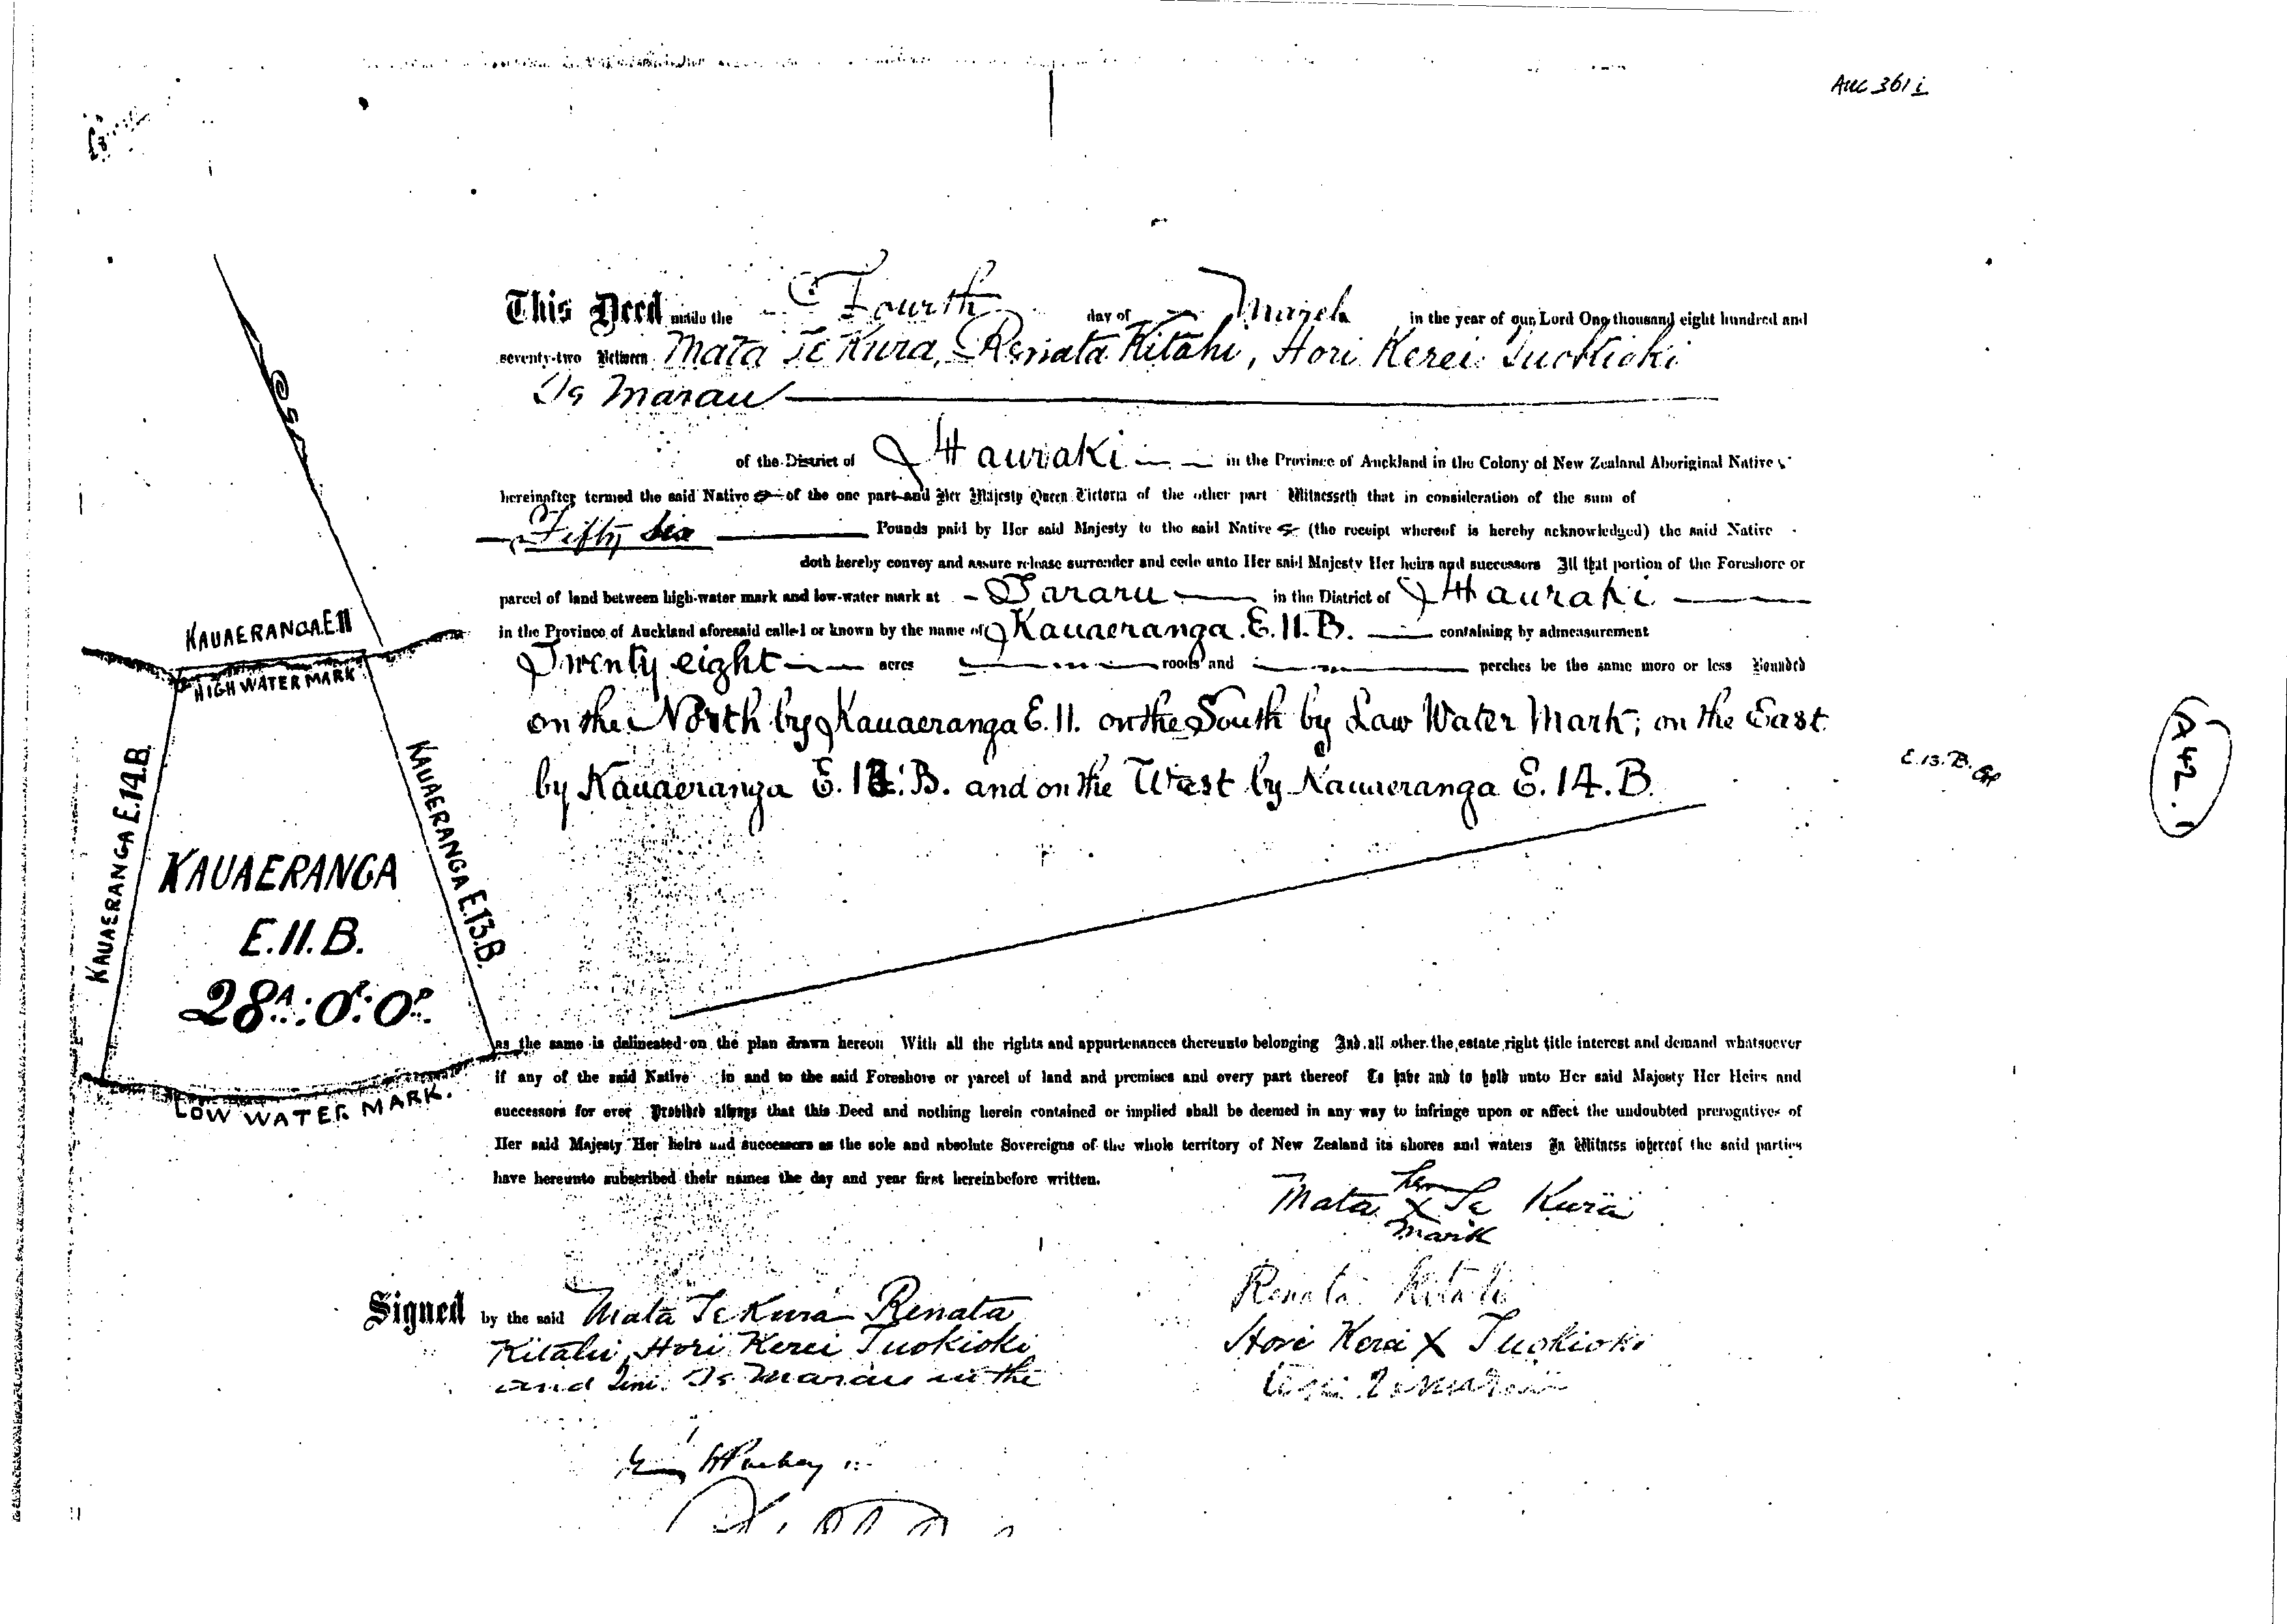 AUC 361 i
This Deed made the Fourth day of March in the year of our Lord One thousand eight hundred and
seventy-two Between Mata Te Kura, Renata Kitahi, Hori Kerei Tuokioki
Te Marau
of the District of Hauraki in the Province of Auckland in the Colony of New Zealand Aboriginal Natives
hereinafter termed the said Natives of the one part and Her Majesty Queen Victoria of the other part Witnesseth that in consideration of the sum of
Fifty six Pounds paid by Her said Majesty to the said Natives (the receipt whereof is hereby acknowledged) the said Native
doth hereby convey and assure release surrender and cede unto Her said Majesty Her heirs and successors All that portion of the Foreshore or
parcel of land between high-water mark and low-water mark at Tararu in the District of Hauraki
in the Province of Auckland aforesaid called or known by the name of Kauaeranga. E. 11. B. containing by admeasurement
Twenty eight acres roods and perches be the same more or less Bounded
on the North by Kauaeranga E. 11. on the South by Law Water Mark; on the East
by Kauaeranga E. 13. B. and on the West by Kauaeranga E. 14. B.
E. 13. B.
A 42.
KAUAERANGA E.11
HIGH WATER MARK
KAUAERANGA E.14.B.
KAUAERANGA E.13.B.
KAUAERANGA
E.11.B.
28A: 0R: 0P.
LOW WATER MARK.
as the same is delineated on the plan drawn hereon With all the rights and appurtenances thereunto belonging And all other the estate right title interest and demand whatsoever
if any of the said Native in and to the said Foreshore or parcel of land and premises and every part thereof To have and to hold unto Her said Majesty Her Heirs and
successors for ever Provided always that this Deed and nothing herein contained or implied shall be deemed in any way to infringe upon or affect the undoubted prerogatives of
Her said Majesty Her heirs and successors as the sole and absolute Sovereigns of the whole territory of New Zealand its shores and waters In Witness whereof the said parties
have hereunto subscribed their names the day and year first hereinbefore written.
her
Mata X Te Kura
mark
Renata Kitahi
Hori Kerei X Tuokioki
Signed by the said Mata Te Kura Renata
Kitahi, Hori Kerei Tuokioki
and Te Marau in the
Puckey